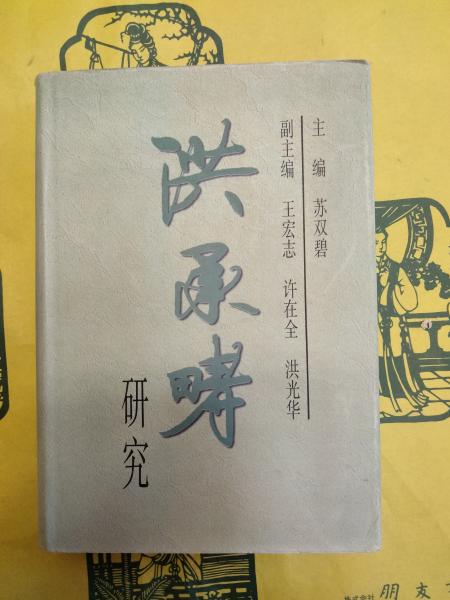 主编 苏双碧
副主编 王宏志 许在全 洪光华
洪承畴
研究
株式会社 朋友